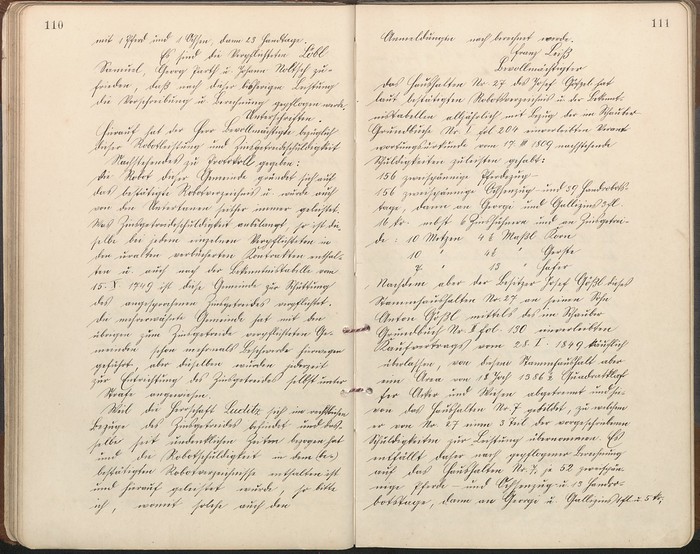 110
mit 1 Pferd und 1 Ochsen, dann 23 Handtage.
Es sind die Verpflichteten Löbl
Samuel, Georg Zarth u. Johann Noltsch zu-
frieden, daß nach dieser bisherigen Leistung
die Verschreibung u. Berechnung gepflogen werde.
Unterschriften.
Hierauf hat der Herr Bevollmächtigte bezüglich
dieser Robotleistung und Zinsgetreideschuldigkeit
Nachstehendes zu Protokoll gegeben:
Die Robot dieser Gemeinde gründet sich auf
das bestätigte Robotverzeichnis u. wurde auch
von den Untertanen seither immer geleistet.
Was Zinsgetreideschuldigkeit anbelangt, so ist die-
selbe bei jedem einzelnen Verpflichteten in
den uralten verbücherten Kontrakten enthal-
ten u. auch nach der Bekenntnistabelle vom
15. X. 1749 ist diese Gemeinde zur Schüttung
des angesprochenen Zinsgetreides verpflichtet.
Die mehrerwähnte Gemeinde hat mit den
übrigen zum Zinsgetreide verpflichteten Ge-
meinden schon mehrmals Beschwerde hierwegen
geführt, aber dieselben wurden jederzeit
zur Entrichtung des Zinsgetreides selbst unter
Strafe angewiesen.
Weil die Herrschaft Luditz sich im rechtlichen
Bezuge des Zinsgetreides befindet und das-
selbe seit undenklichen Zeiten bezogen hat
und die Robotschuldigkeit in dem (be-)
bestätigten Robotverzeichnisse enthalten ist
und hierauf geleistet wurde, so bitte
ich, womit solche auch den
111
Anmeldungen nach berechnet werde.
Franz Leiß
Bevollmächtigter
Das Haushalten No. 27 des Josef Gößl hat
laut bestätigten Robotverzeichnis u. der Bekennt-
nistabellen alljährlich mit Bezug der im Schauber
Grundbuche No. I fol 204 einverleibten
urkunde vom 17. II 1809 nachstehende
Schuldigkeiten zu leisten gehabt:
156 zweispännige Pferdezug-
156 zweispännige Ochsenzug- und 39 Handrobots-
tage, dann an Georgi und Gallizins 3 fl.
16 kr. nebst 6 Zinshühnern und an Zinsgetrei-
de: 10 Metzen 4 6 Maßl Korn
10 " 4 6 " Gerste
7 " 13 " Hafer
Nachdem aber der Besitzer Josef Gößl dieses
Stammhaushalten No. 27 an seinen Sohn
Anton Gößl mittels des im Schauber
Grundbuch No. II fol. 130 einverleibten
Kaufvertrags vom 28. I. 1849 käuflich
überlassen, von diesem Stammhaushalt aber
eine Area von 18 Joch 1386 2 Quadratklaf-
ter Äcker und Wiesen abgetrennt und hie-
von das Haushalten No. 7 gebildet, zu welchem
er von No. 27 einen 3 Teil der vorgeschriebenen
Schuldigkeiten zur Leistung übernommen. Es
entfällt daher nach gepflogener Berechnung
auf das Haushalten No. 7, je 52 zweispän-
nige Pferde- und Ochsenzug- u. 13 Handro-
botstage, dann an Georgi u. Gallizins 1 fl. u. 5 kr,